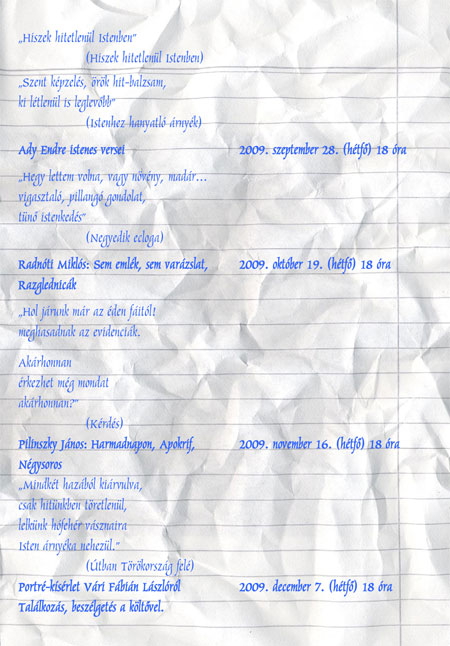 „Hiszek hitetlenül Istenben”
(Hiszek hitetlenül Istenben)
„Szent képzelés, örök hit-balzsam,
ki létlenül is leglevőbb”
(Istenhez hanyatló árnyék)
Ady Endre Istenes versei 2009. szeptember 28. (hétfő) 18 óra
„Hegy lettem volna, vagy növény, madár...
vigasztaló, pillangó gondolat,
tünő istenkedés”
(Negyedik ecloga)
Radnóti Miklós: Sem emlék, sem varázslat, 2009. október 19. (hétfő) 18 óra
Razglednicák
„Hol járunk már az éden fáitól!
meghasadnak az evidenciák.
Akárhonnan
érkezhet még mondat
akárhonnan?”
(Kérdés)
Pilinszky János: Harmadnapon, Apokrif, 2009. november 16. (hétfő) 18 óra
Négysoros
„Mindkét hazából kiárvulva,
csak hitünkben töretlenül,
lelkünk hófehér vásznaira
Isten árnyéka nehezül.”
(Útban Törökország felé)
Portré-kísérlet Vári Fábián Lászlóról 2009. december 7. (hétfő) 18 óra
Találkozás, beszélgetés a költővel.